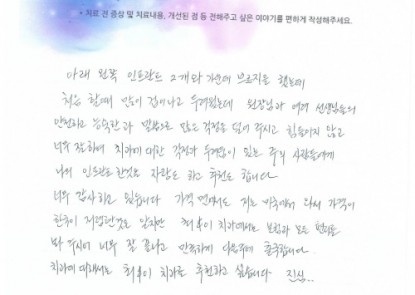 * 치료 전 증상 및 치료내용, 개선된 점 등 전해주고 싶은 이야기를 편하게 작성해주세요.
아래 왼쪽 임플란트 2개와 가운데 브릿지를 했는데
처음 할때 많이 겁이나고 두려웠는데 원장님과 여러 선생님들의
안전하고 능숙한 과 말씀으로 많은 걱정을 덜어 주시고 힘들이지 않고
너무 잘하여 치과에 대한 걱정과 두려움이 있는 주위 사람들에게
나서 임플란트 한것을 자랑도 하고 추천도 합니다
너무 감사하고 있습니다 가격 면에서도 저는 에서 와서 가격이
한국이 저렴한것도 알지만 치과에서는 보험과 모든
봐 주시어 너무 잘 끝나고 만족하게 다음주에 출국합니다
치과에 대해서는 치과를 추천하고 싶습니다 진심...